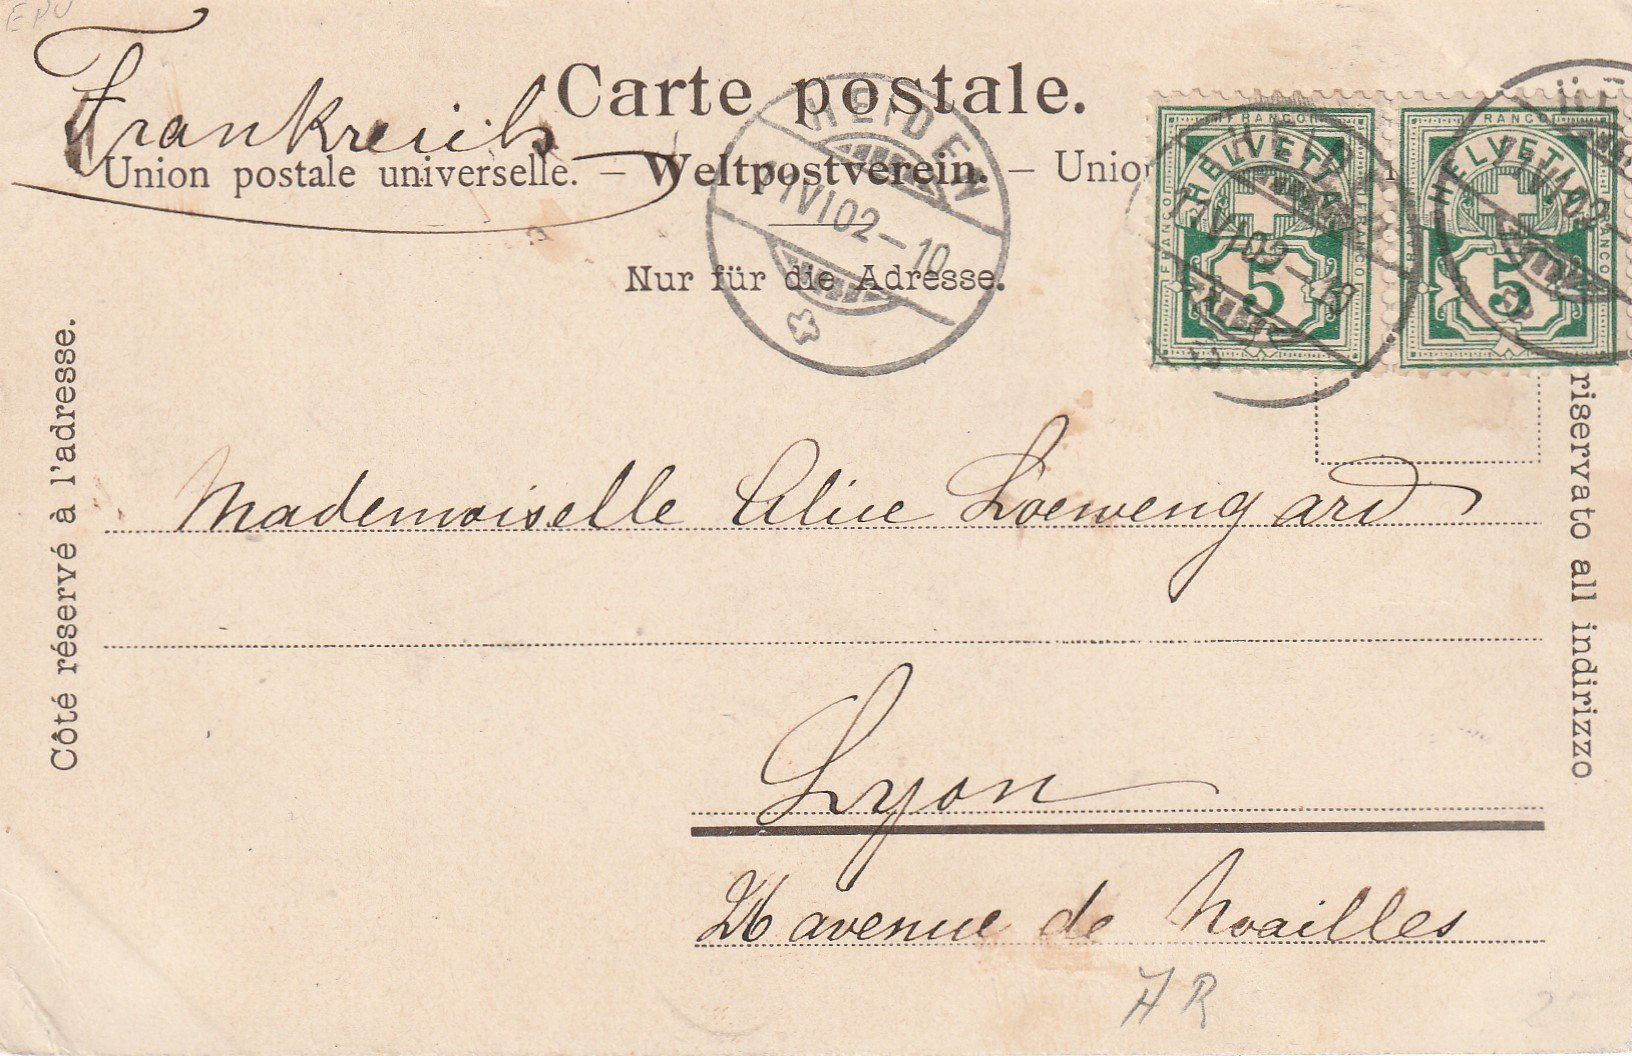 EPU
Frankreich
Carte postale.
Union postale universelle. – Weltpostverein. – Union
Nur für die Adresse.
HEIDEN
1 VI 02 – 10
FRANCO HELVETIA FRANCO FRANCO 5
HEIDEN
VI 02
FRANCO HELVETIA FRANCO FRANCO 5
Côté réservé à l'adresse.
riservato all indirizzo
Mademoiselle Alice Loewengard
Lyon
26 avenue de Noailles
AR